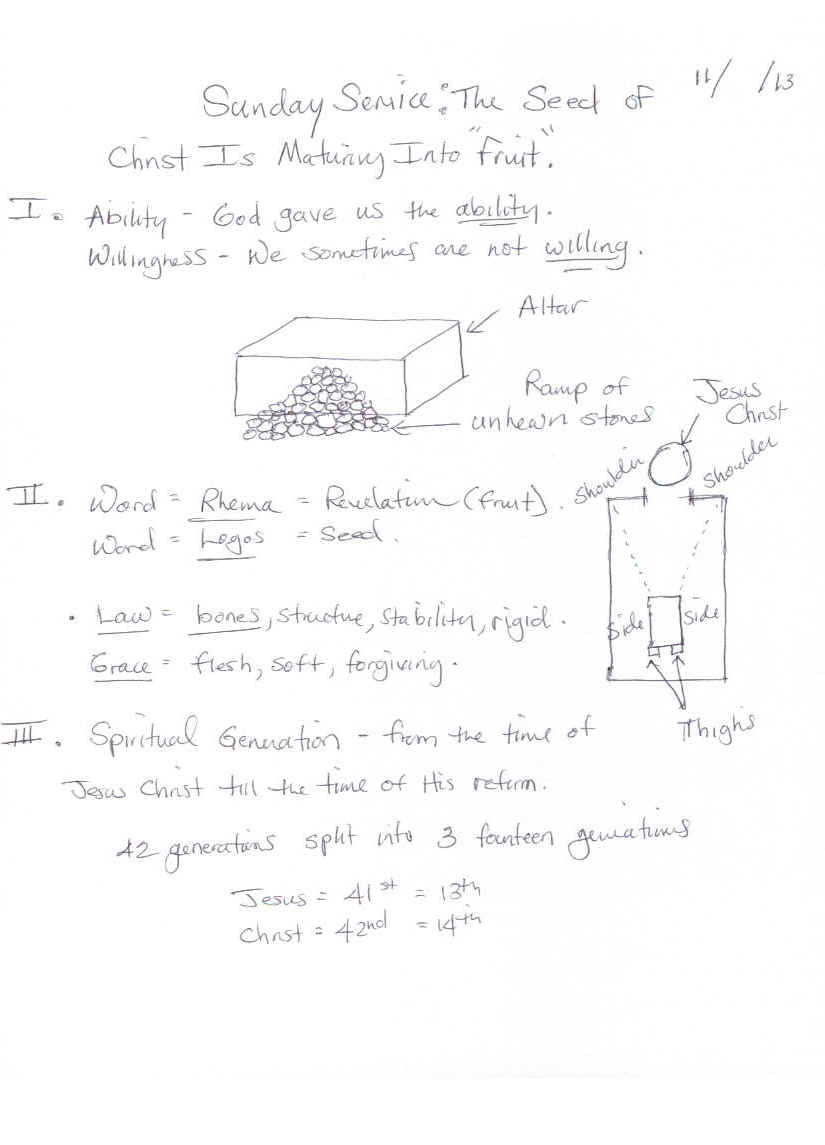 11/ /13
Sunday Service: The Seed of
Christ Is Maturing Into "Fruit".
I. Ability - God gave us the ability.
Willingness - We sometimes are not willing.
Altar
Ramp of
unhewn stones
Jesus
Christ
Shoulder
Shoulder
II. Word = Rhema = Revelation (fruit).
Word = Logos = Seed.
• Law = bones, structure, stability, rigid.
Side
Side
Grace = flesh, soft, forgiving.
Thighs
III. Spiritual Generation - from the time of
Jesus Christ till the time of His return.
42 generations split into 3 fourteen generations
Jesus = 41st = 13th
Christ = 42nd = 14th